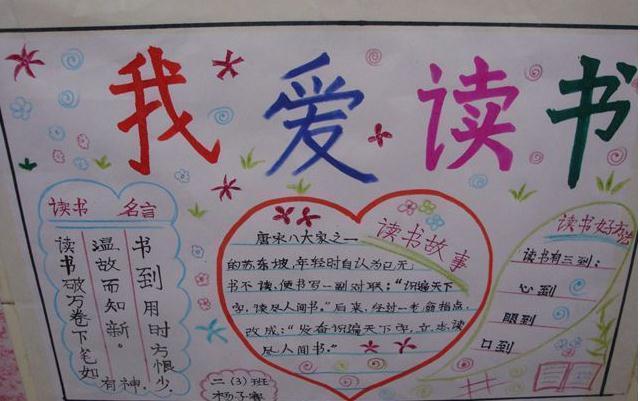 我爱读书
读书 名言
书到用时方恨少.
温故而知新。
读书破万卷下笔如
有神.
读书故事
唐宋八大家之一
的苏东坡,年轻时自认为已无
书不读,便书写一副对联:"识遍天下
字,读尽人间书。"后来,经过一老翁指点,
改成:"发奋识遍天下字,立志读
尽人间书。"
二(3)班
杨子
读书好方法
读书有三到:
心到
眼到
口到